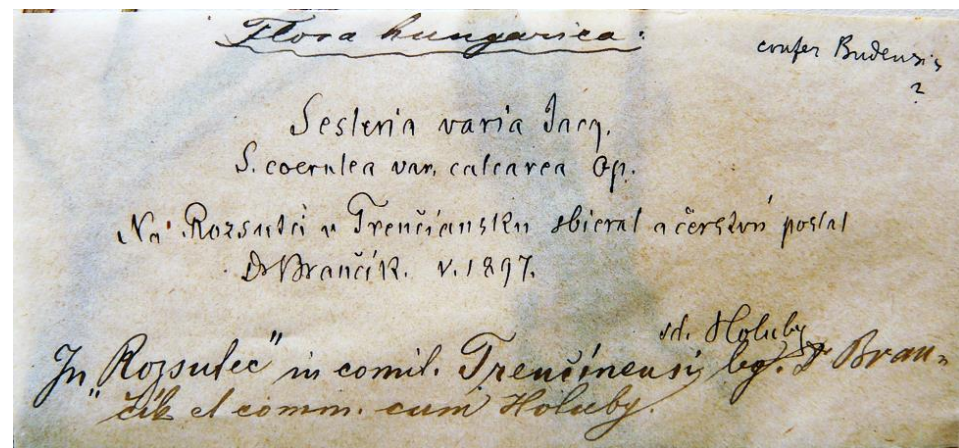 Flora hungarica:
confer Budensis
?
Sesleria varia Jacq.
S. coerulea var. calcarea Op.
Na Rozsutci v Trenčiansku sbieral a čerstvú poslal
Dr Brančík. V. 1897.
sd. Holuby
In "Rozsutec" in comit. Trenčinensi lgt. Dr Bran=
čik et comm. cum Holuby.